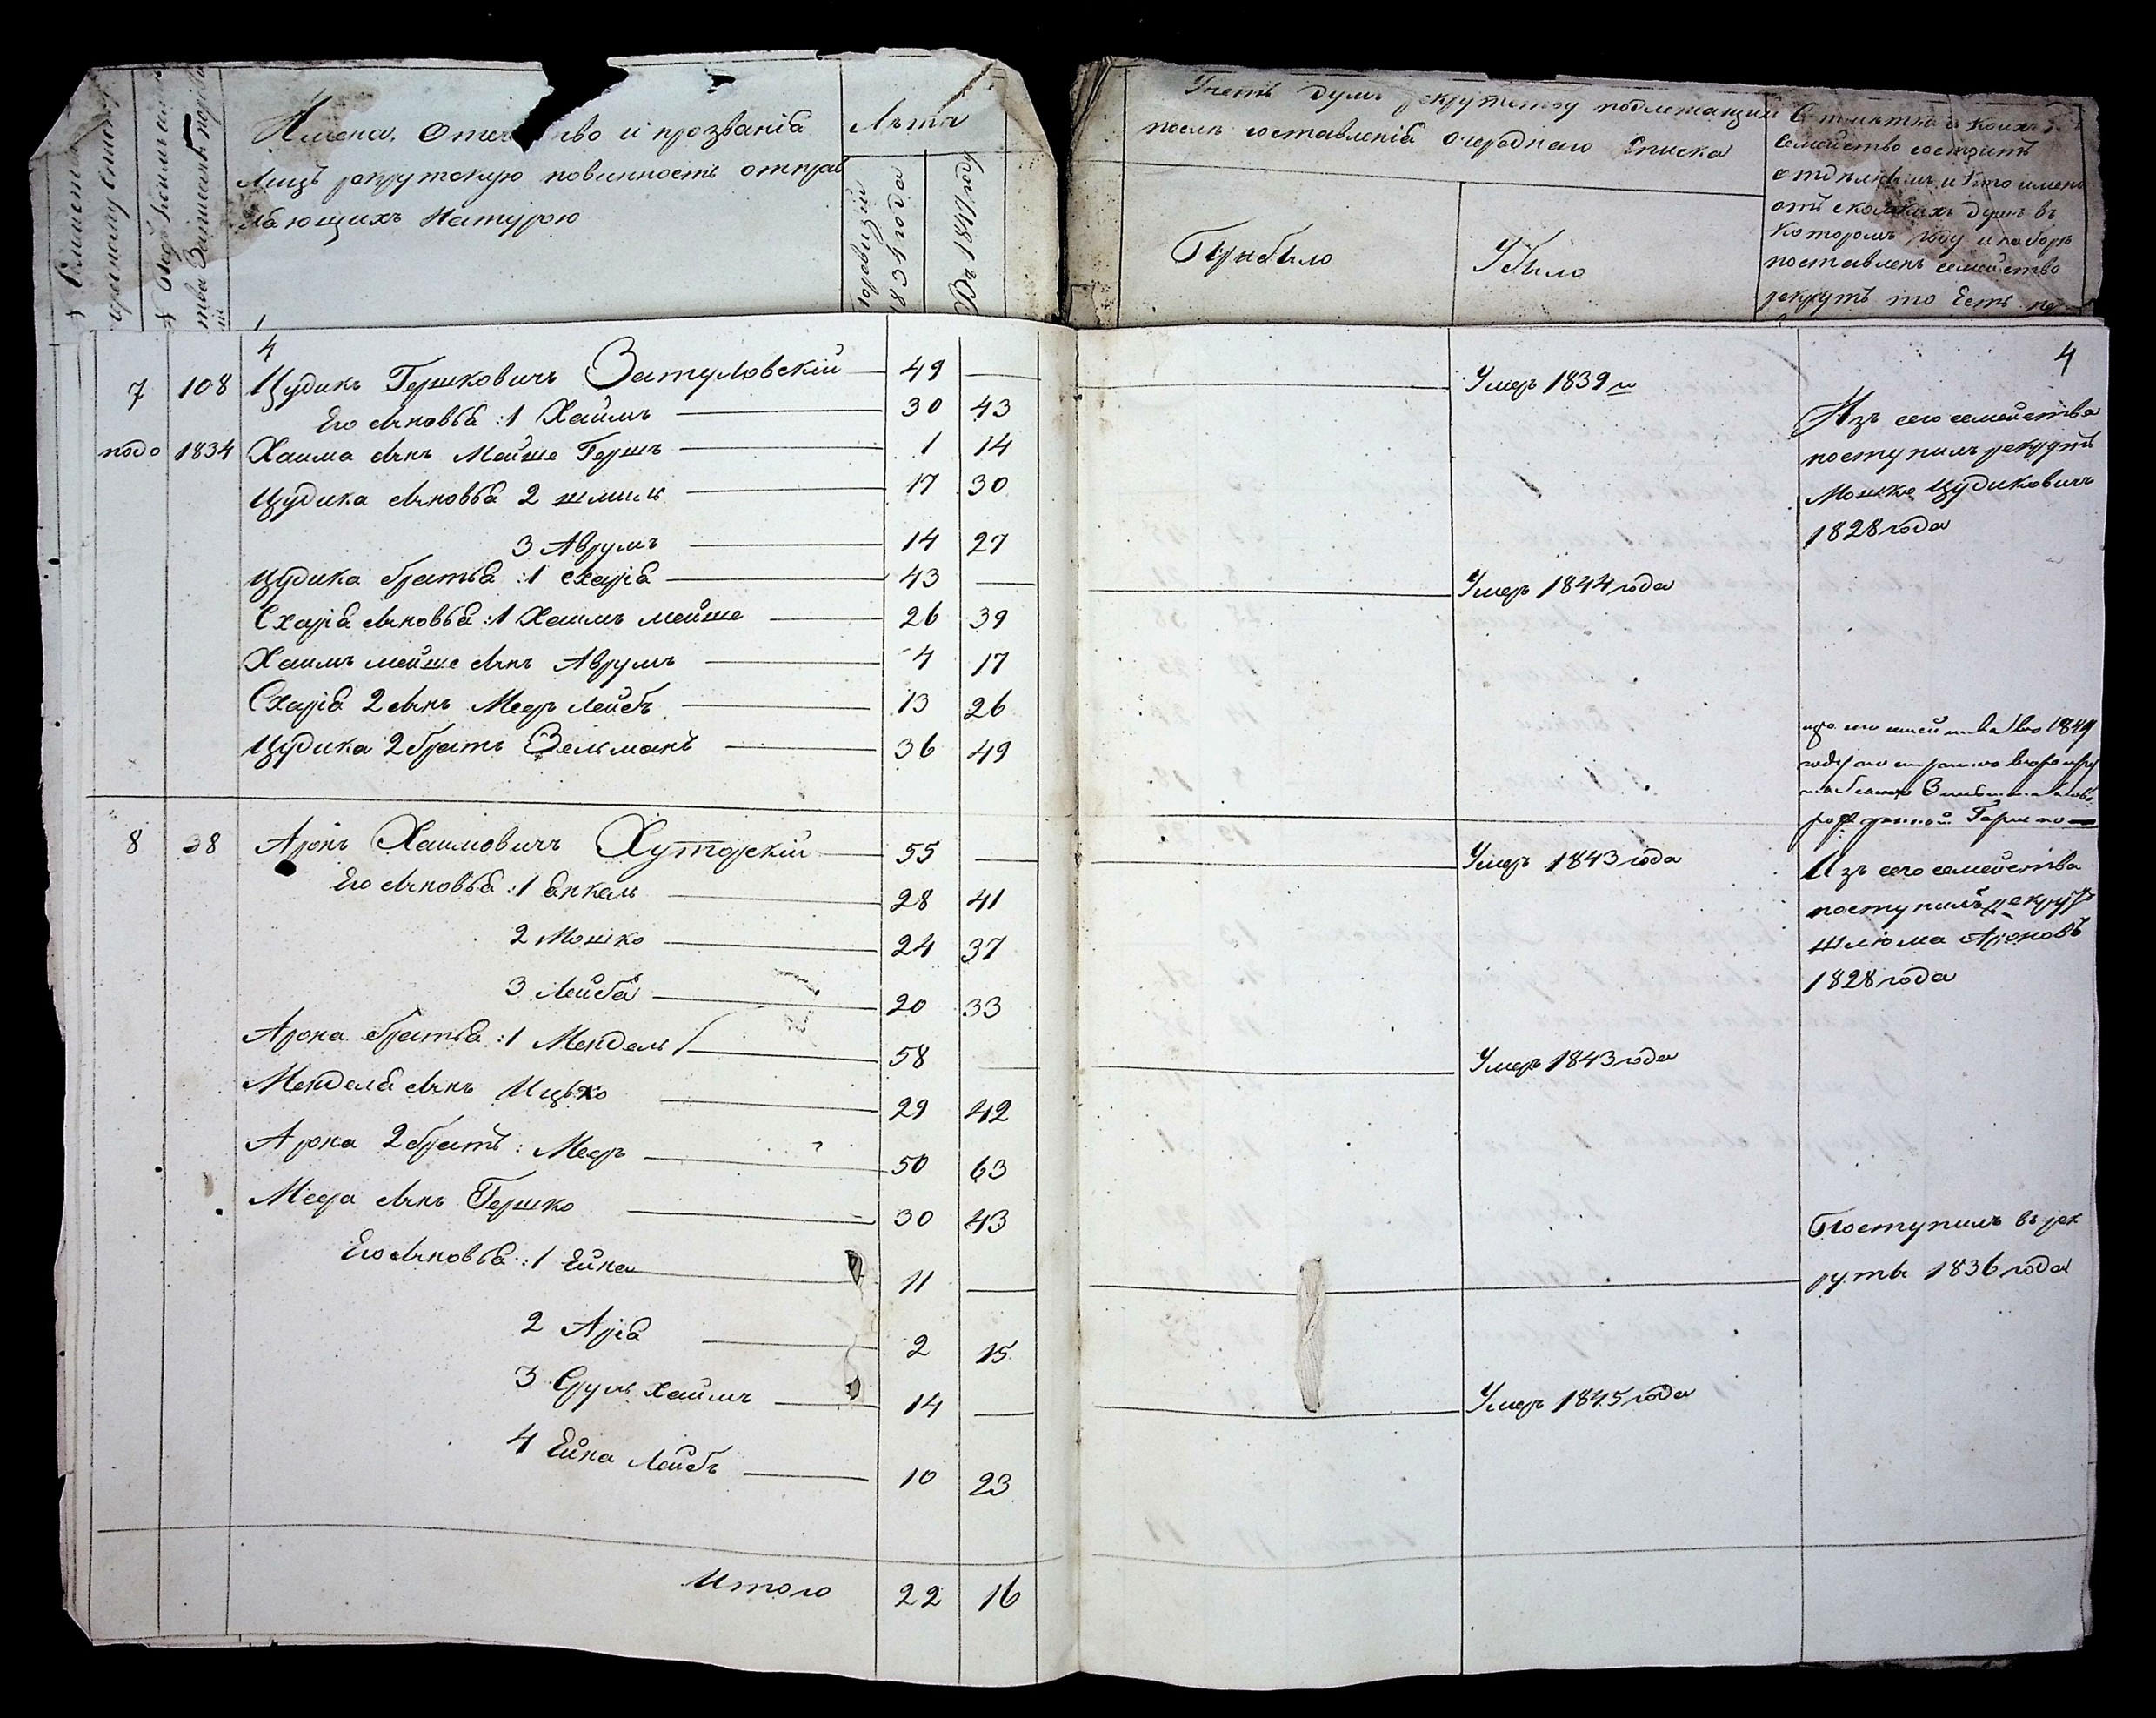 Имена, Отечество и прозванія
Лицъ рекрутскую повинность отправ
ляющихъ Натурою
Лѣта
По ревизіи
1834 года
Въ 1847 году
Учетъ душъ рекрутству подлежащихъ
послѣ составленія Очереднаго Списка
Прибыло
Убыло
Семейство состоитъ
отдѣльн и кто имено
отъ сколькихъ душъ въ
которомъ году и наборѣ
поставленъ семейство
рекрутъ то Есть
4
4
7 108 Цудикъ Гершковичъ Затуловскій 49 — Умеръ 1839 го
Его сыновья: 1 Хаимъ 30 43
Изъ сего семейства
подо 1834 Хаима сынъ Мойше Гершъ 1 14
поступилъ рекрутъ
Цудика сыновья 2 шмиль 17 30
Мошко Цудиковичъ
1828 года
3 Аврумъ 14 27
Цудика братья: 1 Схарія 43 — Умеръ 1844 года
Схарія сыновья: 1 Хаимъ мойше 26 39
Хаимъ мойше сынъ Аврумъ 4 17
Схарія 2 сынъ Меер Лейбъ 13 26
Цудика 2 братъ Зельманъ 36 49
1849
8 38 Аронъ Хаимовичъ Хуторскій 55 — Умеръ 1843 года
Изъ сего семейства
Его сыновья: 1 Янкель 28 41
поступилъ рекрутъ
2 Мошко 24 37
шлюма Ароновъ
1828 года
3 Лейба 20 33
Арона братья: 1 Мендель 58 — Умеръ 1843 года
Менделя сынъ Ицько 29 42
Арона 2 братъ: Меер 50 63
Меера сынъ Гершко 30 43
Поступилъ въ рек
Его сыновья: 1 Ейна 11 —
руты 1836 года
2 Арія 2 15
3 Сруль Хаимъ 14 — Умеръ 1845 года
4 Ейна Лейбъ 10 23
Итого 22 16